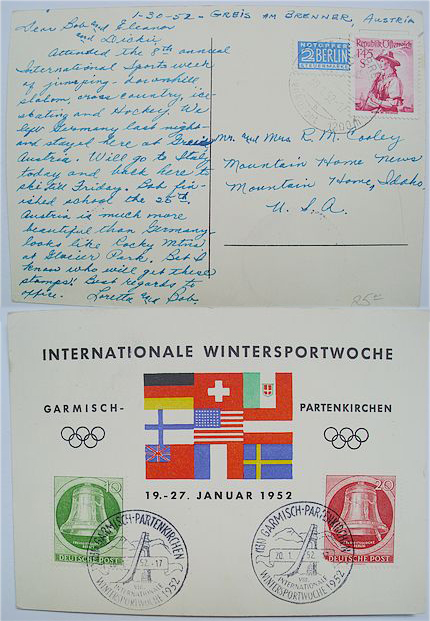 1-30-52 - GREIS AM BRENNER, AUSTRIA
Dear Bob and Eleanor
and Dickie
Attended the 8th annual
International Sports week
of jumping - downhill
slalom, cross country, ice-
skating and Hockey. We
left Germany last night
and stayed here at Greis
Austria. Will go to Italy
today and back here to
ski till Friday. Bob fin-
ished school the 25th.
Austria is much more
beautiful than Germany
looks like Rocky Mtns
at Glacier Park. Bet I
know who will get these
stamps! Best regards to
office. Loretta and Bob.
NOTOPFER
2 BERLIN
STEUERMARKE
Republik Österreich
1.45
S
Mr. and Mrs R. M. Cooley
Mountain Home News
Mountain Home, Idaho,
U. S. A.
25
INTERNATIONALE WINTERSPORTWOCHE
GARMISCH-
PARTENKIRCHEN
19.-27. JANUAR 1952
10
DEUTSCHE POST
GARMISCH-PARTENKIRCHEN
52.-17
VIII
INTERNATIONALE
WINTERSPORTWOCHE 1952
20
DEUTSCHE POST
GARMISCH-PARTENKIRCHEN
20.1. 52.
VIII
INTERNATIONALE
WINTERSPORTWOCHE 1952